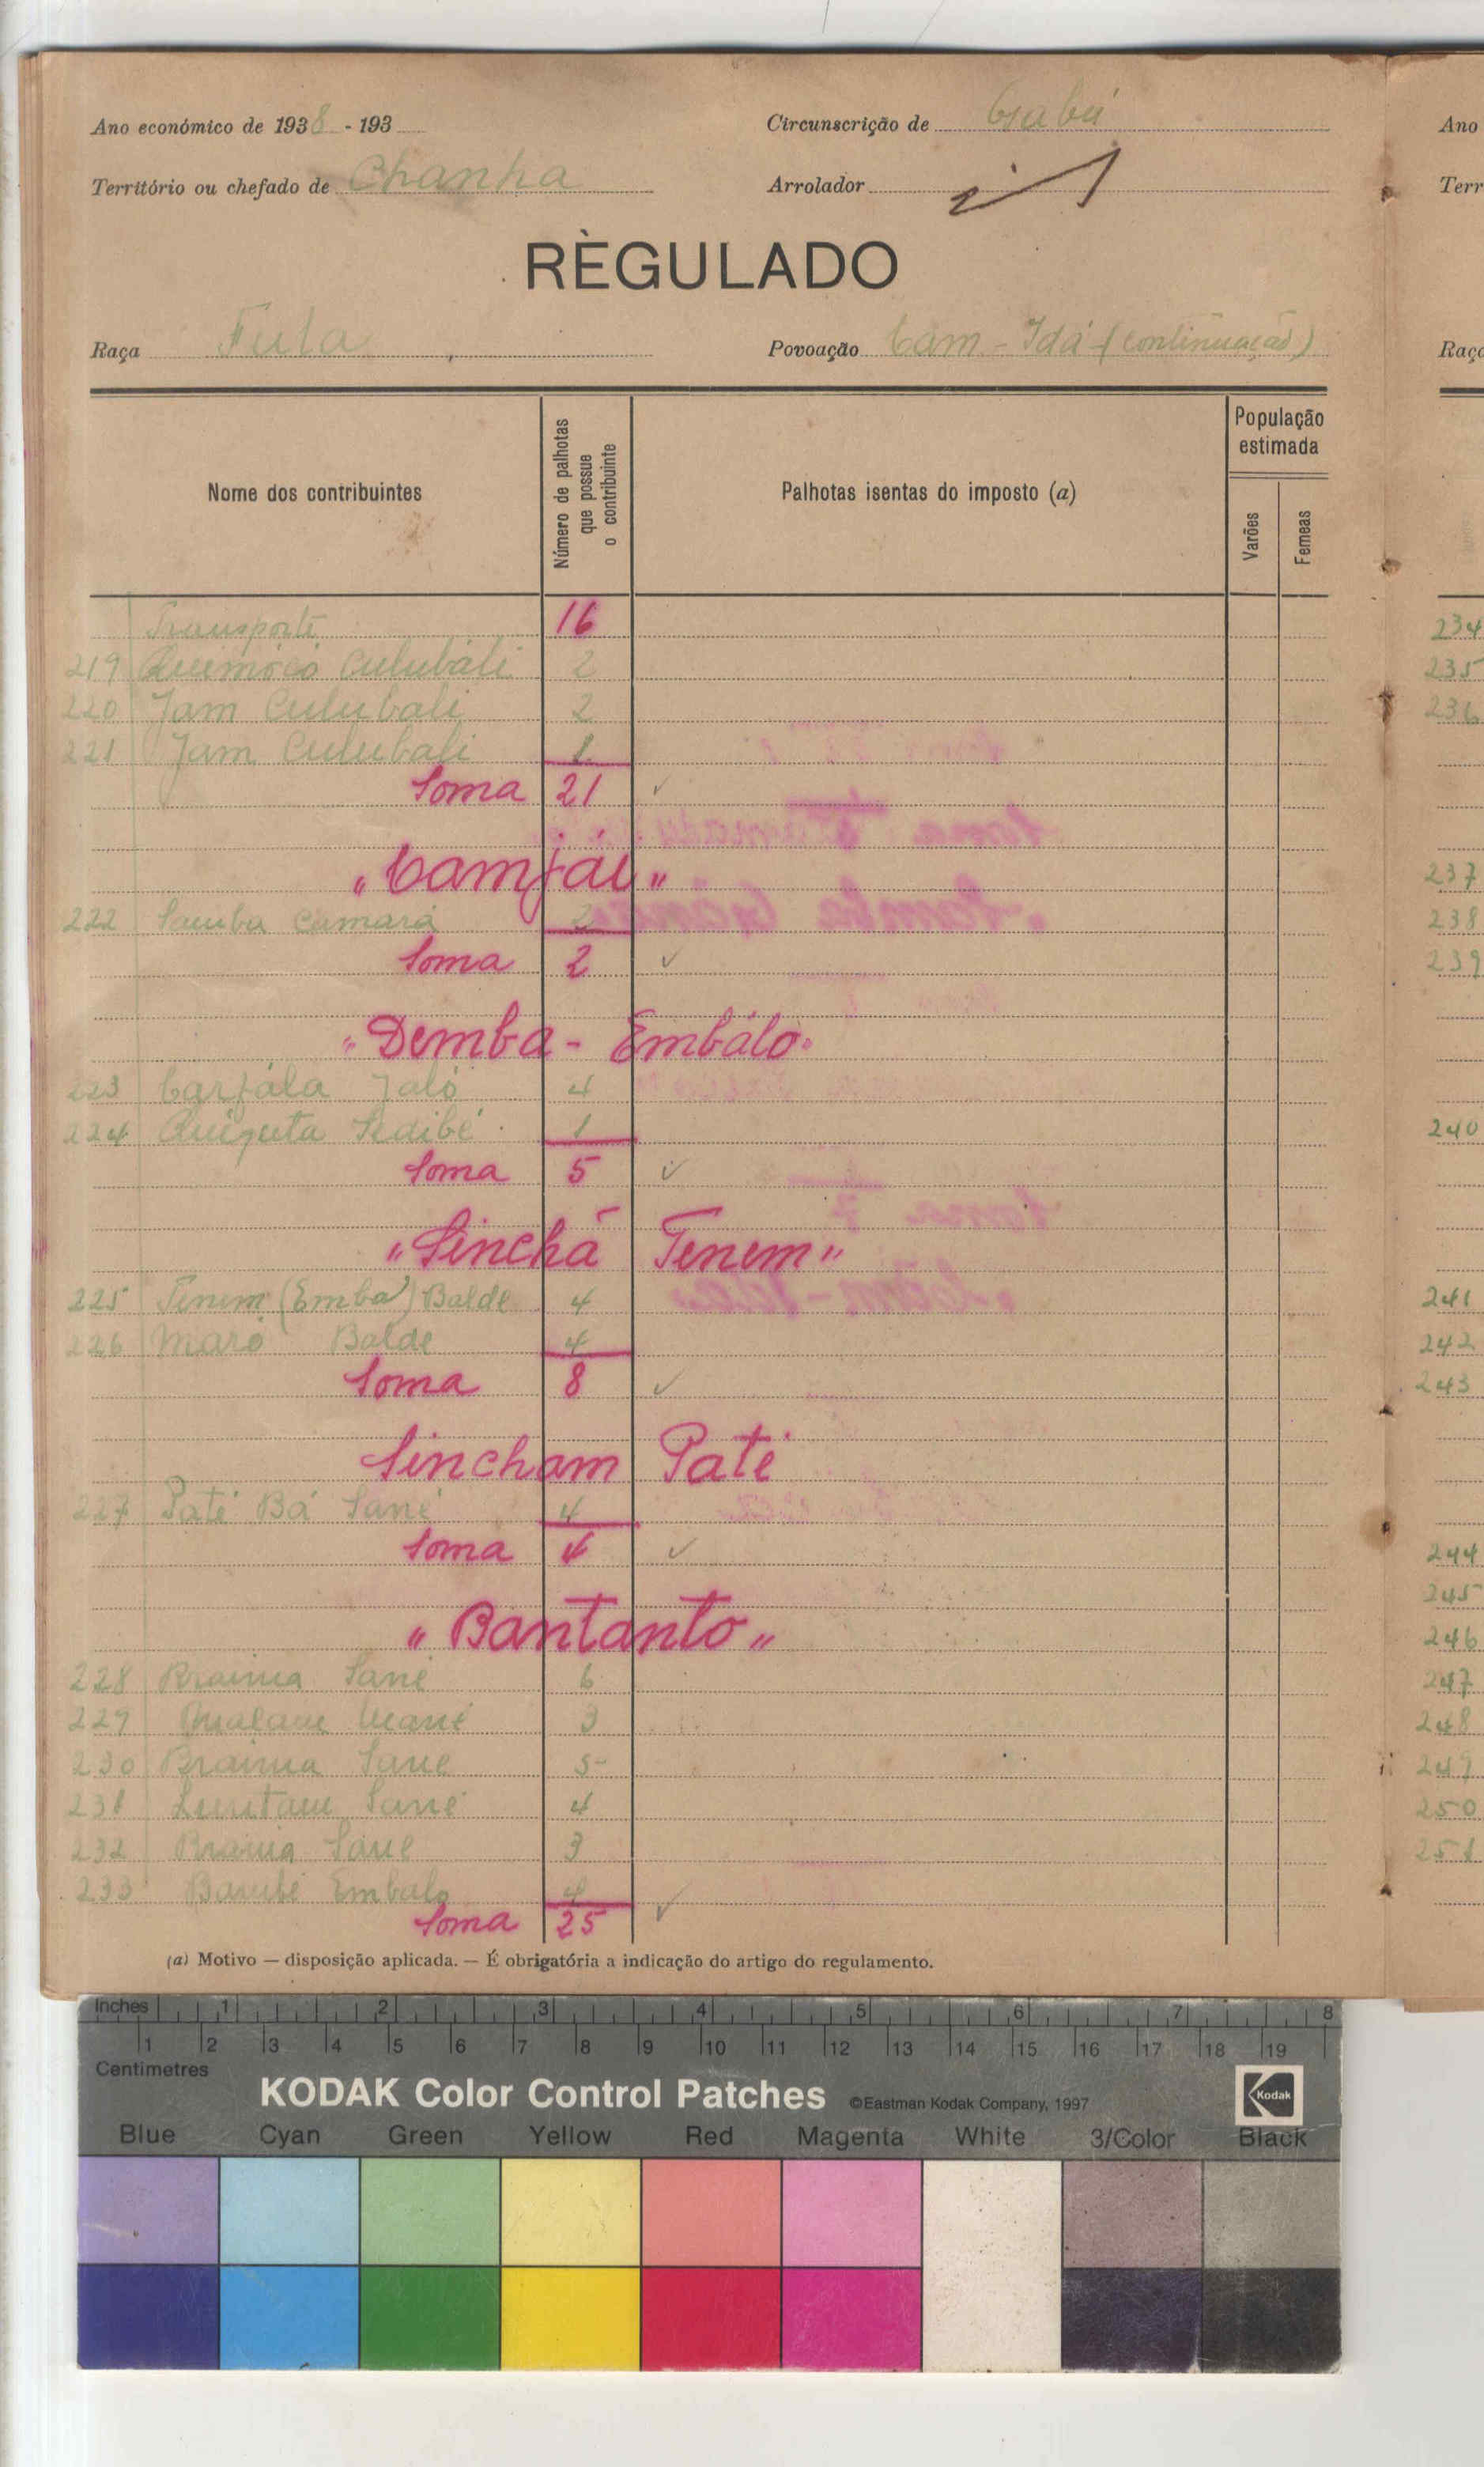 Ano económico de 1938 - 193
Circunscrição de Gabú
Território ou chefado de Chanha
Arrolador
RÈGULADO
Raça Fula
Povoação Cam - Idá - (continuação)
Nome dos contribuintes
Número de palhotas que possue o contribuinte
Palhotas isentas do imposto (a)
População estimada
Varões
Femeas
Transporte 16
219 Quemócó Culubáli 2
220 Jam Culubali 2
221 Jam Culubali 1
Soma 21 ✓
"Camjái"
222 Samba Camará 2
Soma 2 ✓
"Demba - Embálo"
223 Carfála Jaló 4
224 Quiguta Sedibé 1
Soma 5 ✓
"Sinchã Tenem"
225 Tenem (Emba) Balde 4
226 Maró Balde 4
Soma 8 ✓
Sincham Paté
227 Paté Bá Sané 4
Soma 4 ✓
"Bantanto"
228 Braima Sané 6
229 Mané 3
230 Braima Sane 5
231 Sané 4
232 Braima Sane 3
233 Embalo 4
Soma 25 ✓
(a) Motivo — disposição aplicada. — É obrigatória a indicação do artigo do regulamento.
Ano
Terr
Raç
234
235
236
237
238
239
240
241
242
243
244
245
246
247
248
249
250
251
Inches 1 2 3 4 5 6 7 8
1 2 3 4 5 6 7 8 9 10 11 12 13 14 15 16 17 18 19
Centimetres
KODAK Color Control Patches ©Eastman Kodak Company, 1997 Kodak
Blue Cyan Green Yellow Red Magenta White 3/Color Black